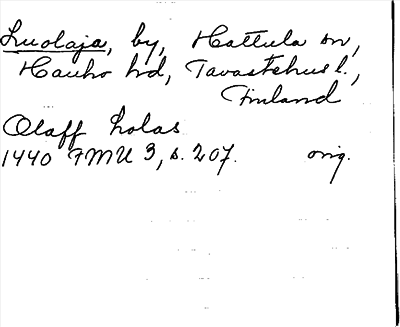 Luolaja, by, Hattula sn,
Hauho hd, Tavastehus l.,
Finland
Olaff Lolas
1440 FMU 3, s. 207. orig.